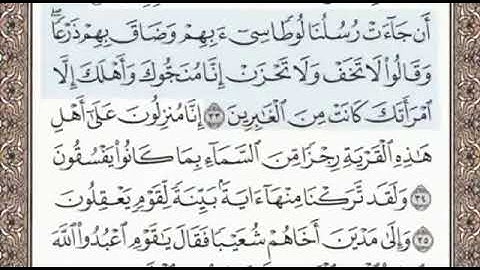 أَن جَآءَتْ رُسُلُنَا لُوطًا سِيٓءَ بِهِمْ وَضَاقَ بِهِمْ ذَرْعًا ۖ
وَقَالُوا۟ لَا تَخَفْ وَلَا تَحْزَنْ إِنَّا مُنَجُّوكَ وَأَهْلَكَ إِلَّا
ٱمْرَأَتَكَ كَانَتْ مِنَ ٱلْغَٰبِرِينَ ٣٣ إِنَّا مُنزِلُونَ عَلَىٰٓ أَهْلِ
هَٰذِهِ ٱلْقَرْيَةِ رِجْزًا مِّنَ ٱلسَّمَآءِ بِمَا كَانُوا۟ يَفْسُقُونَ
٣٤ وَلَقَد تَّرَكْنَا مِنْهَآ ءَايَةًۢ بَيِّنَةً لِّقَوْمٍ يَعْقِلُونَ
٣٥ وَإِلَىٰ مَدْيَنَ أَخَاهُمْ شُعَيْبًا فَقَالَ يَٰقَوْمِ ٱعْبُدُوا۟ ٱللَّهَ